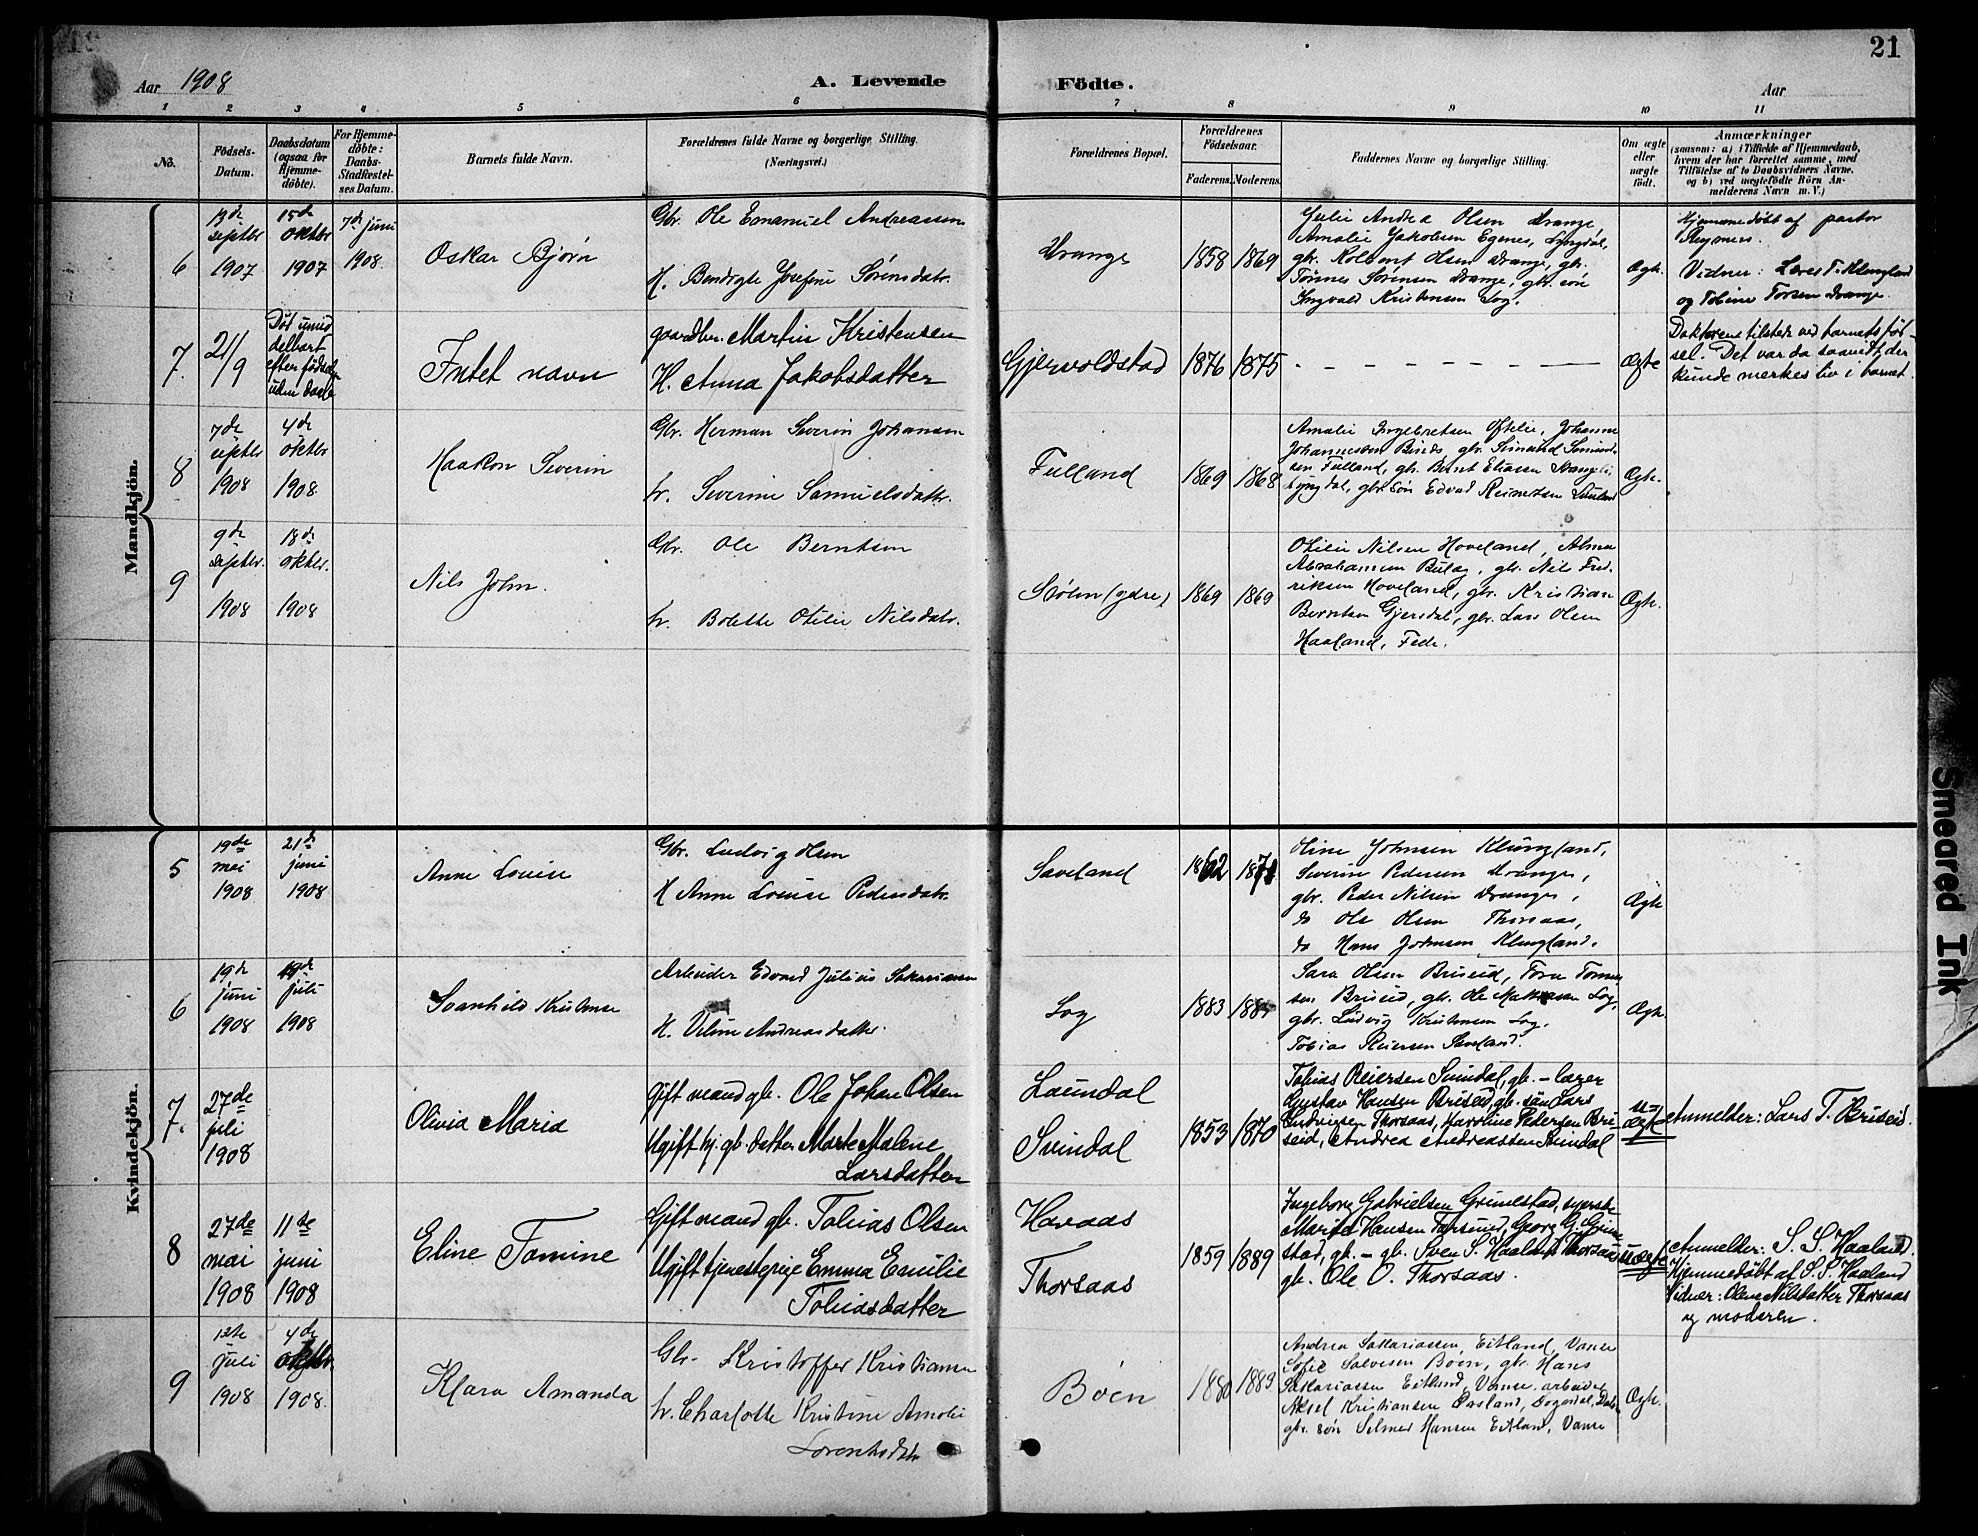 21
Aar 1908
A. Levende
Födte.
Aar
1 2 3 4 5 6 7 8 9 10 11
No.
Födsels-
Datum.
Daabsdatum
(ogsaa for
Hjemme-
döbte).
For Hjemme-
döbte:
Daabs-
Stadfæstel-
ses Datum.
Barnets fulde Navn.
Forældrenes fulde Navne og borgerlige Stilling.
(Næringsvei.)
Forældrenes Bopæl.
Forældrenes
Födselsaar.
Faderens.
Moderens.
Faddernes Navne og borgerlige Stilling.
Om ægte
eller
uægte
födt.
Anmærkninger
(saasom: a) i Tilfælde af Hjemmedaab,
hvem der har forrettet samme, med
Tilföielse af to Daabsvidners Navne,
og b) ved uægtefödte Börn An-
melderens Navn m. V.)
Mandkjön.
6
septbr
1907
15de
oktbr
1907
7de juni
1908
Oskar Bjørn
Gbr. Ole Emanuel Andreassen
H. Josefine Sørensdatr.
Drange
1858
1869
Julie Andrea Olsen Drange
Amalie Jakobsen Egenes, Lyngdal,
gbr. Kolbent Olsen Drange, gbr.
Tønnes Sørensen Drange, gbr. søn
Ingvald Kristensen Log.
Ægte.
Hjemmedöbt af pastor
Reymert.
Vidner: Lars T. Klungland
og Tobine Torsen Drange.
7.
21/9
Död umid
delbart
efter födselen
uden daab
Intet navn
gaardbr. Martin Kristensen
H. Anna Jakobsdatter
Gjervoldstad
1876
1875
- - - - - - - -
Ægte
Doktoren tilstede ved barnets föd-
sel. Det var da saavidt der
kunde merkes liv i barnet.
8
7de
septbr
1908
4de
oktbr
1908
Haakon Severin
Gbr. Herman Severin Johansen
h. Severine Samuelsdatr.
Fulland
1869
1868
Amalie Ingebretsen Oftelie, Johanne
Johannessen Birids, gbr. Simund Simund-
sen Fulland, gbr. Bernt Eliasen
Lyngdal, gbr. søn Edvad
Ægte.
9
9de
septbr.
1908
18de
oktbr.
1908
Nils John.
Gbr. Ole Berntsen
h. Bolette Otilie Nilsdatr.
Stølen (ydre)
1869
1869
Otilie Nilsen Hoveland, Alma
Abrahamsen Bulag, gbr. Nils Fred-
riksen Hoveland, gbr. Kristian
Berntsen Gjersdal, gbr. Lars Olsen
Haaland, Fede.
Ægte.
Kvindekjön.
5
19de
mai
1908
21de
juni
1908
Anne Louise
Gbr. Ludvig Olsen
H Anne Louise Pedersdatr.
Saveland
1862
1871
Oline Johnsen Klungland,
Severine Pedersen Drange,
gbr. Peder Nilsen Drange,
do Ole Olsen Thorsaas,
do Hans Johnsen Klungland.
Ægte
6
19de
juni
1908
19de
juli
1908
Svanhild Kristense
Arbeider Edvard Julius Sakariassen
H. Veline Andreasdatter.
Log
1883
Sara Olsen Briseid, Tora Tønnes-
sen Briseid, gbr. Ole Mathiasen Log,
gbr. Ludvig Kristensen Log.
Tobias Reiersen Saveland.
Ægte.
7.
27de
juli
1908
Olivia Maria
Gift mand gb. Ole Johan Olsen
Ugift hj. gb. datter Marte Malene
Larsdatter
Laundal
Svindal
1853
1870
Tobias Reiersen Svindal, gb. – lærer
Gustav Hansen Briseid, gb. søn Lars
Ludvigsen Thorsaas, Karoline Pedersen Bri-
seid, Andrea Andreassen Svindal
u=
ægte
Anmelder: Lars T. Briseid.
8
27de
mai
1908
11te
juni
1908
Eline Tomine
Gift mand gb. Tobias Olsen
Ugift tjenestepige Emma Emilie
Tobiasdatter
Havaas
Thorsaas
1859
1889
Ingeborg Gabrielsen Grimestad, syerske
Marita Hansen Farsund, Georg G. Grime
stad, gb. – gb. Sven S. Haaland Thorsaas
gb. Ole O. Thorsaas.
uægte
Anmelder: S. S. Haaland.
Hjemmedöbt af S. S. Haaland
Vidner: Olene Nilsdatter Thorsaas
og moderen.
9
12te
juli
1908
4de
oktbr.
1908.
Klara Amanda
Gbr. Kristoffer Kristiansen
h. Charlotte Kristine Amalie
Lorentsdatr
Bøen
1880
1883
Andrea Sakariassen, Eitland, Vanse
Sofie Salvesen Bøen, gbr. Hans
Sakariassen Eitland, Vanse, arbeider
Aksel Kristiansen
gbr. søn Selmer Hansen Eitland, Vanse
Ægte.
Smeared Ink